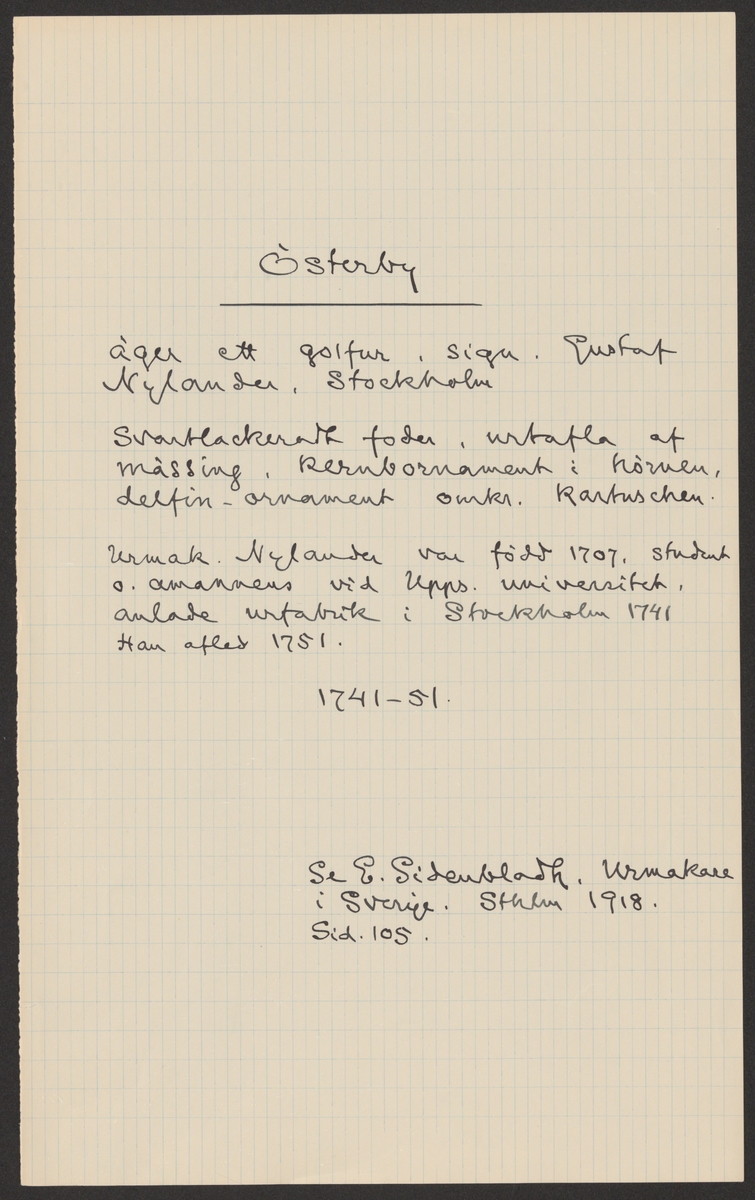 Österby
äger ett golfur, sign. Gustaf
Nylander, Stockholm
Svartlackeradt foder, urtafla af
mässing, kerubornament i hörnen,
delfin-ornament omkr. kartuschen.
Urmak. Nylander var född 1707, student
o. amannens vid Upps. universitet,
anlade urfabrik i Stockholm 1741
Han afled 1751.
1741-51.
Se E. Sidenbladh, Urmakare
i Sverige. Sthlm 1918.
Sid. 105.